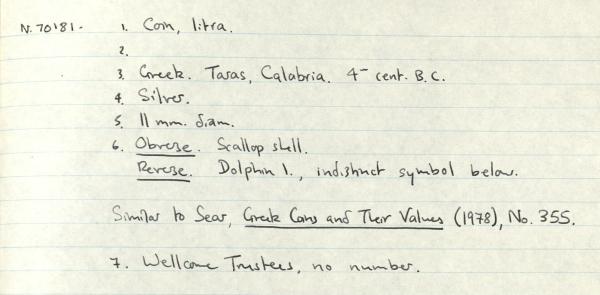 N.70181. 1. Coin, litra.
2.
3. Greek. Taras, Calabria. 4- cent. B.C.
4. Silver.
5. 11 mm. diam.
6. Obverse. Scallop shell.
Reverse. Dolphin l., indistinct symbol below.
Similar to Sear, Greek Coins and Their Values (1978), No. 355.
7. Wellcome Trustees, no number.